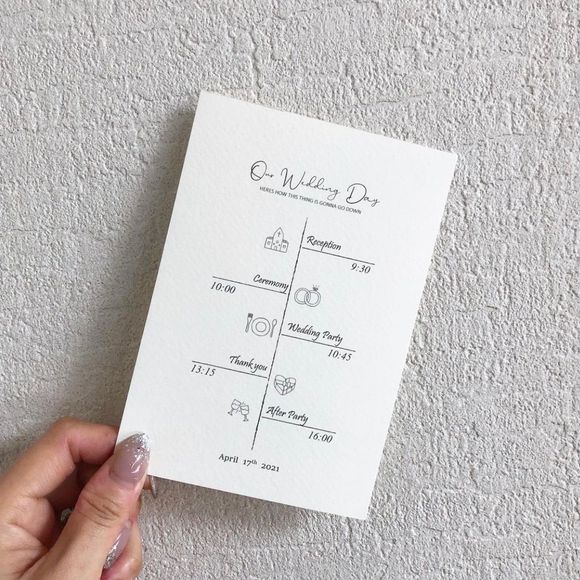 Our Wedding Day
HERES HOW THIS THING IS GONNA GO DOWN
Reception
9:30
Ceremony
10:00
Wedding Party
10:45
Thank you
13:15
After Party
16:00
April 17th 2021